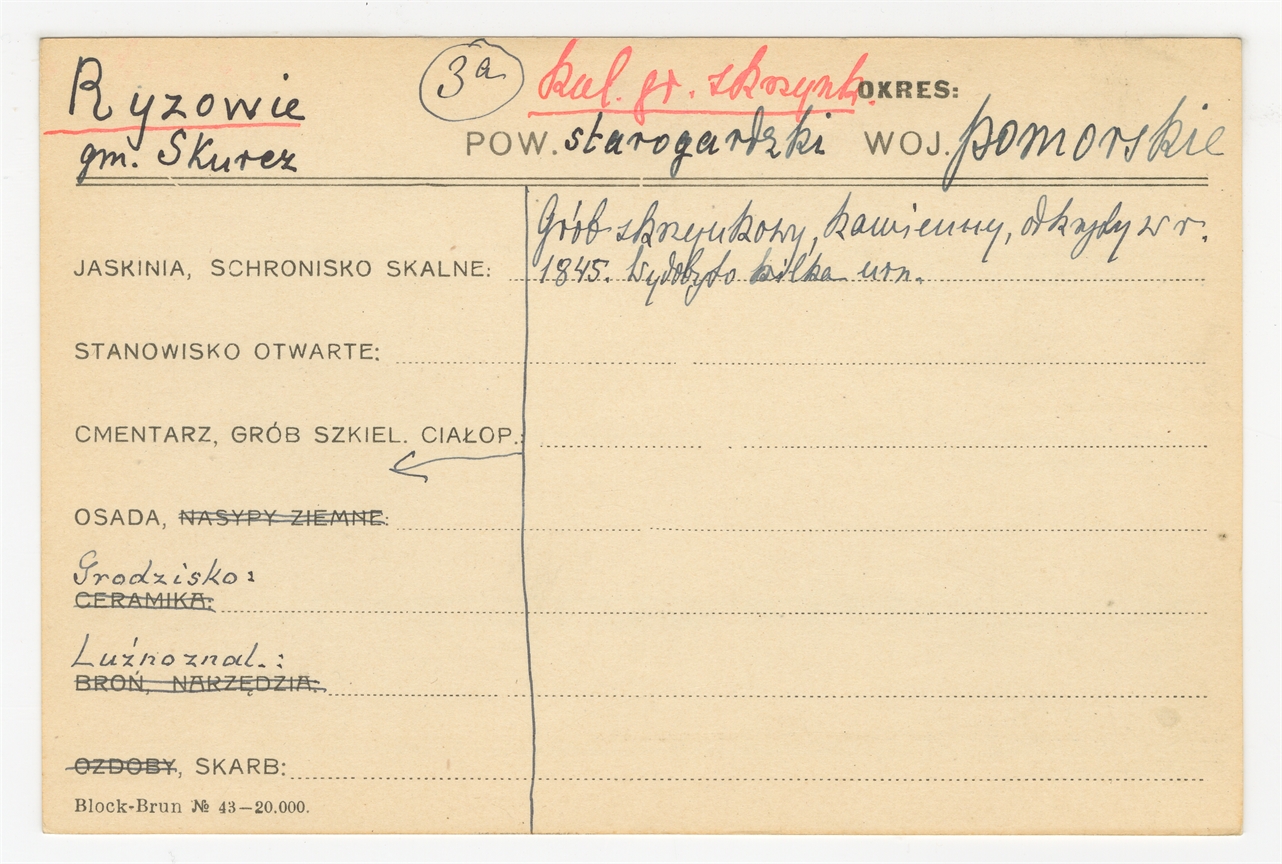 Ryzowie
3a
kul. gr. skrzynk.
OKRES:
gm. Skurcz
POW. starogardzki WOJ. pomorskie
Grób skrzynkowy, kamienny, odkryty w r.
JASKINIA, SCHRONISKO SKALNE:
1845. Wydobyto kilka urn.
STANOWISKO OTWARTE:
CMENTARZ, GRÓB SZKIEL. CIAŁOP.:
OSADA, NASYPY ZIEMNE:
Grodzisko:
CERAMIKA:
Luźno znal.:
BROŃ, NARZĘDZIA:
OZDOBY, SKARB:
Block-Brun № 43—20.000.